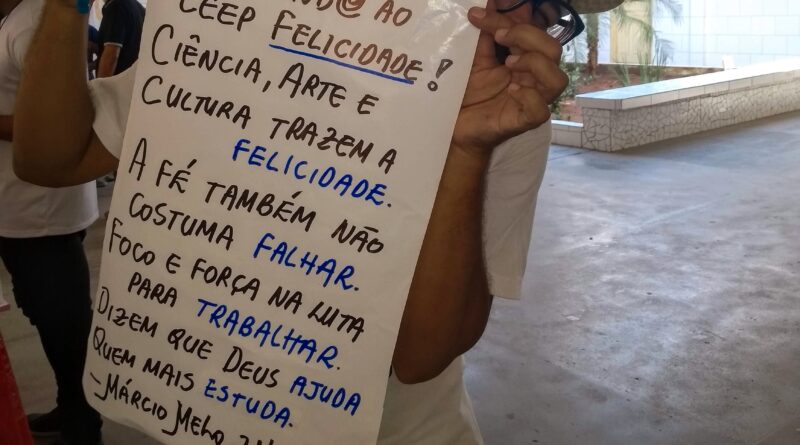 AO
CEEP FELICIDADE!
CIÊNCIA, ARTE E
CULTURA TRAZEM A
FELICIDADE.
A FÉ TAMBÉM NÃO
COSTUMA FALHAR.
FOCO E FORÇA NA LUTA
PARA TRABALHAR.
DIZEM QUE DEUS AJUDA
QUEM MAIS ESTUDA.
-MÁRCIO MELO